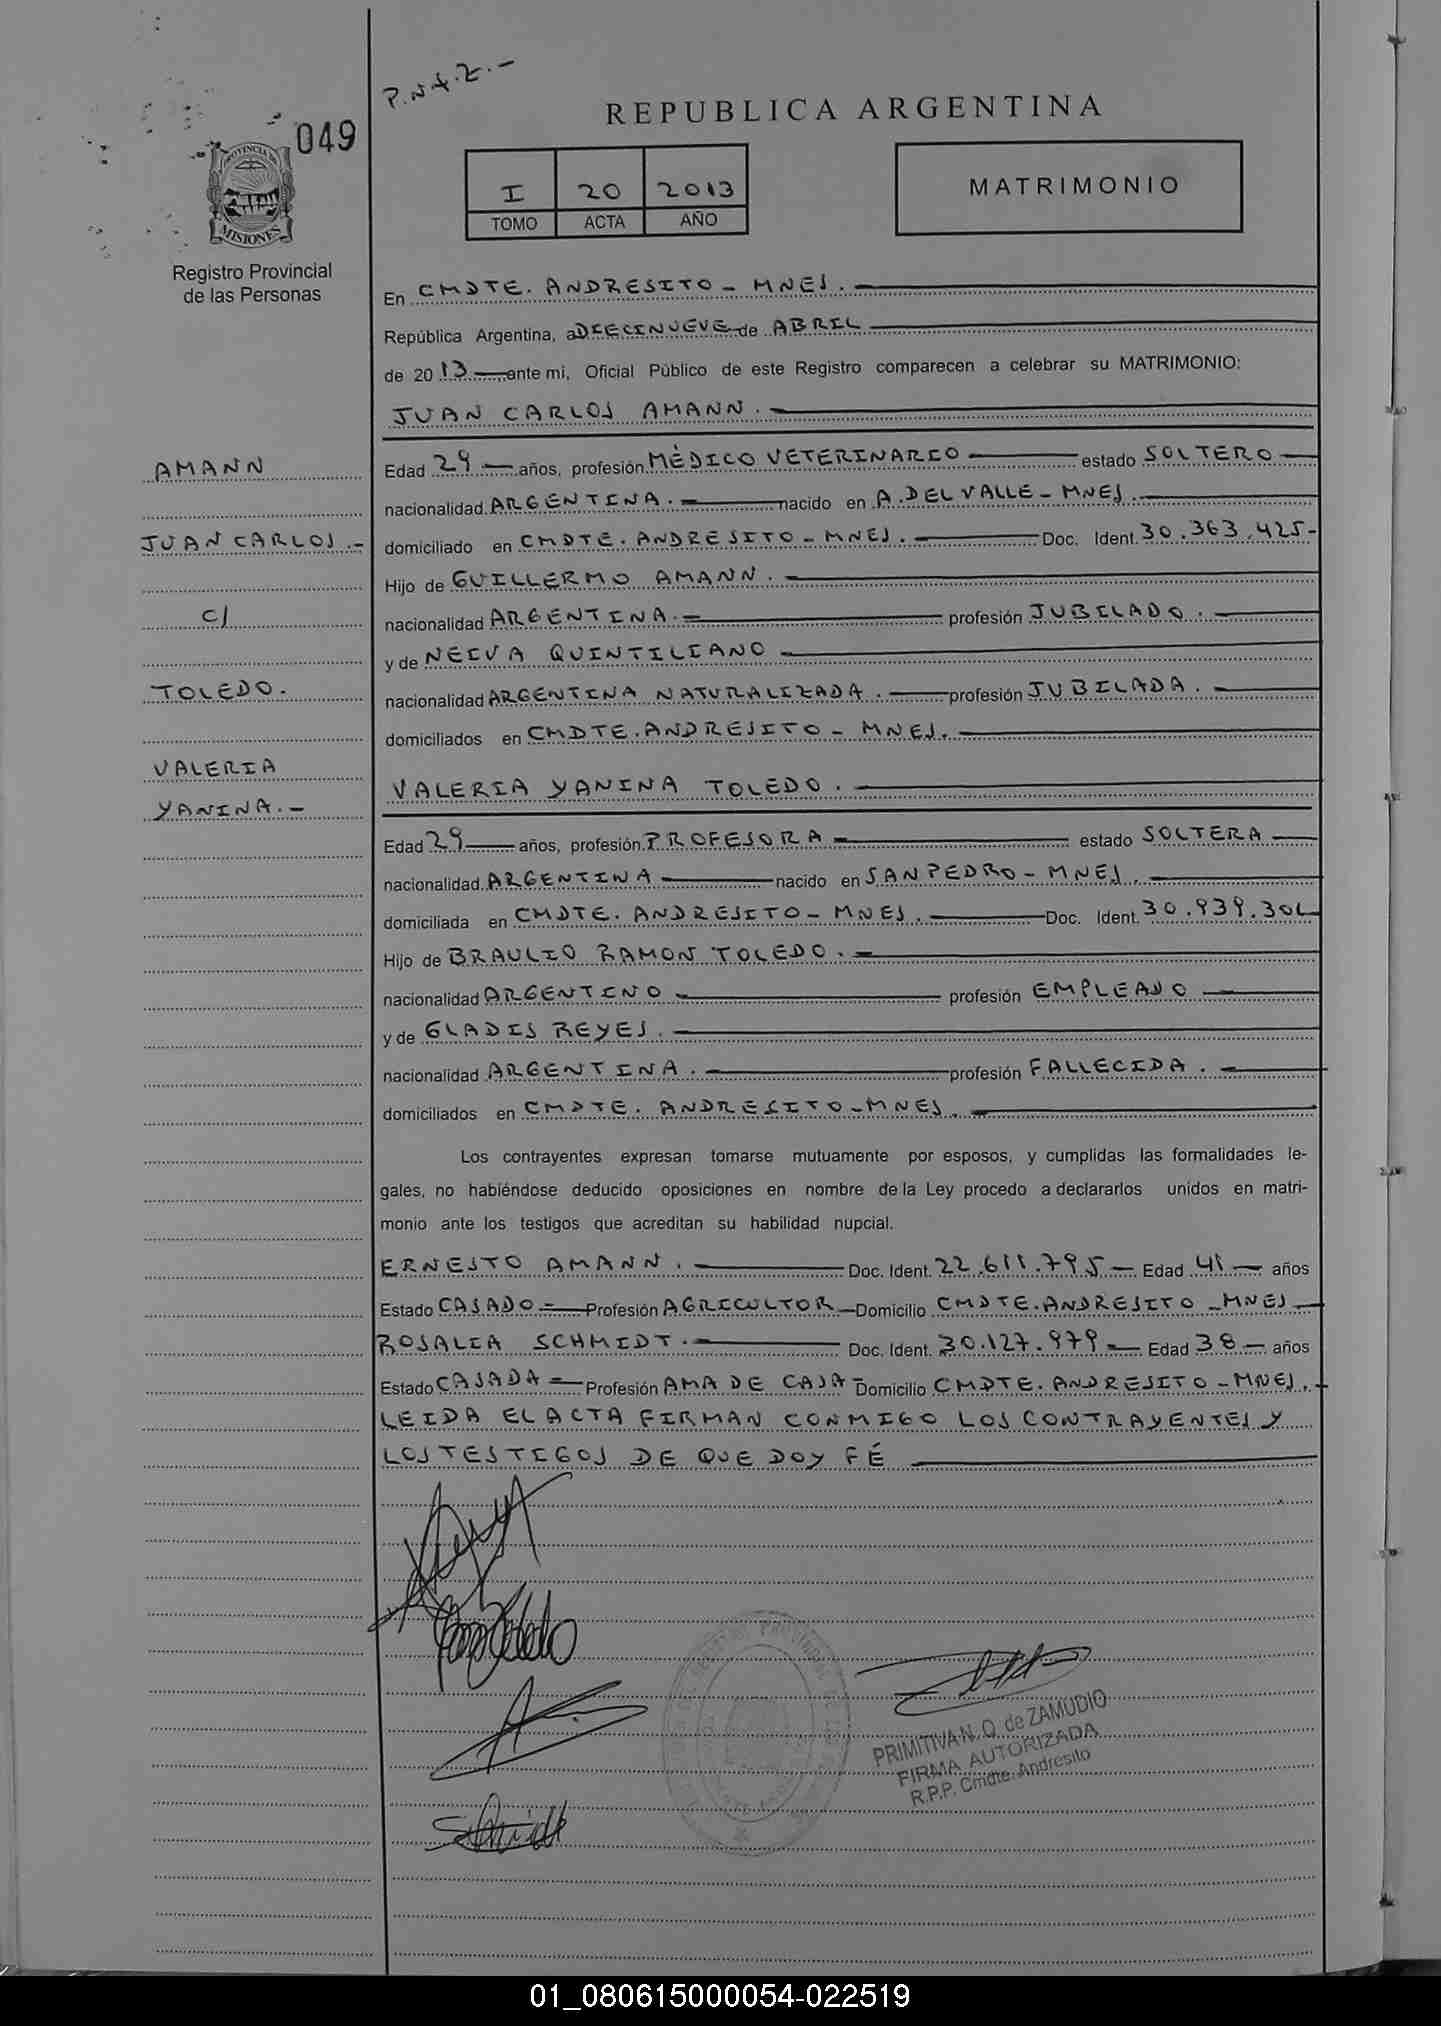 P.N.A.Z.-
049
REPUBLICA ARGENTINA
I 20 2013
TOMO ACTA AÑO
MATRIMONIO
PROVINCIA DE
MISIONES
Registro Provincial
de las Personas
En CMDTE. ANDRESITO - MNES.
República Argentina, a DIECINUEVE de ABRIL
de 2013 ante mi, Oficial Público de este Registro comparecen a celebrar su MATRIMONIO:
JUAN CARLOS AMANN.
AMANN
JUAN CARLOS.-
C/
TOLEDO.
VALERIA
YANINA.-
Edad 29 años, profesión MÉDICO VETERINARIO estado SOLTERO
nacionalidad ARGENTINA. nacido en A. DEL VALLE - MNES.
domiciliado en CMDTE. ANDRESITO - MNES. Doc. Ident. 30.363.425-
Hijo de GUILLERMO AMANN.
nacionalidad ARGENTINA. profesión JUBILADO.
y de NEIVA QUINTILIANO
nacionalidad ARGENTINA NATURALIZADA. profesión JUBILADA.
domiciliados en CMDTE. ANDRESITO - MNES.
VALERIA YANINA TOLEDO.
Edad 29 años, profesión PROFESORA estado SOLTERA
nacionalidad ARGENTINA nacido en SAN PEDRO - MNES.
domiciliada en CMDTE. ANDRESITO - MNES. Doc. Ident.
Hijo de BRAULIO RAMON TOLEDO.
nacionalidad ARGENTINO profesión EMPLEADO
y de GLADIS REYES.
nacionalidad ARGENTINA. profesión FALLECIDA.
domiciliados en CMDTE. ANDRESITO - MNES.
Los contrayentes expresan tomarse mutuamente por esposos, y cumplidas las formalidades le-
gales, no habiéndose deducido oposiciones en nombre de la Ley procedo a declararlos unidos en matri-
monio ante los testigos que acreditan su habilidad nupcial.
ERNESTO AMANN. Doc. Ident. 22.611.795 Edad 41 años
Estado CASADO Profesión AGRICULTOR Domicilio CMDTE. ANDRESITO - MNES
ROSALIA SCHMIDT. Doc. Ident. 30.127.979 Edad 38 años
Estado CASADA Profesión AMA DE CASA Domicilio CMDTE. ANDRESITO - MNES.
LEIDA EL ACTA FIRMAN CONMIGO LOS CONTRAYENTES Y
LOS TESTIGOS DE QUE DOY FÉ
Schmidt
PRIMITIVA N. O. de ZAMUDIO
FIRMA AUTORIZADA
R.P.P. Cmdte. Andresito
01_080615000054-022519